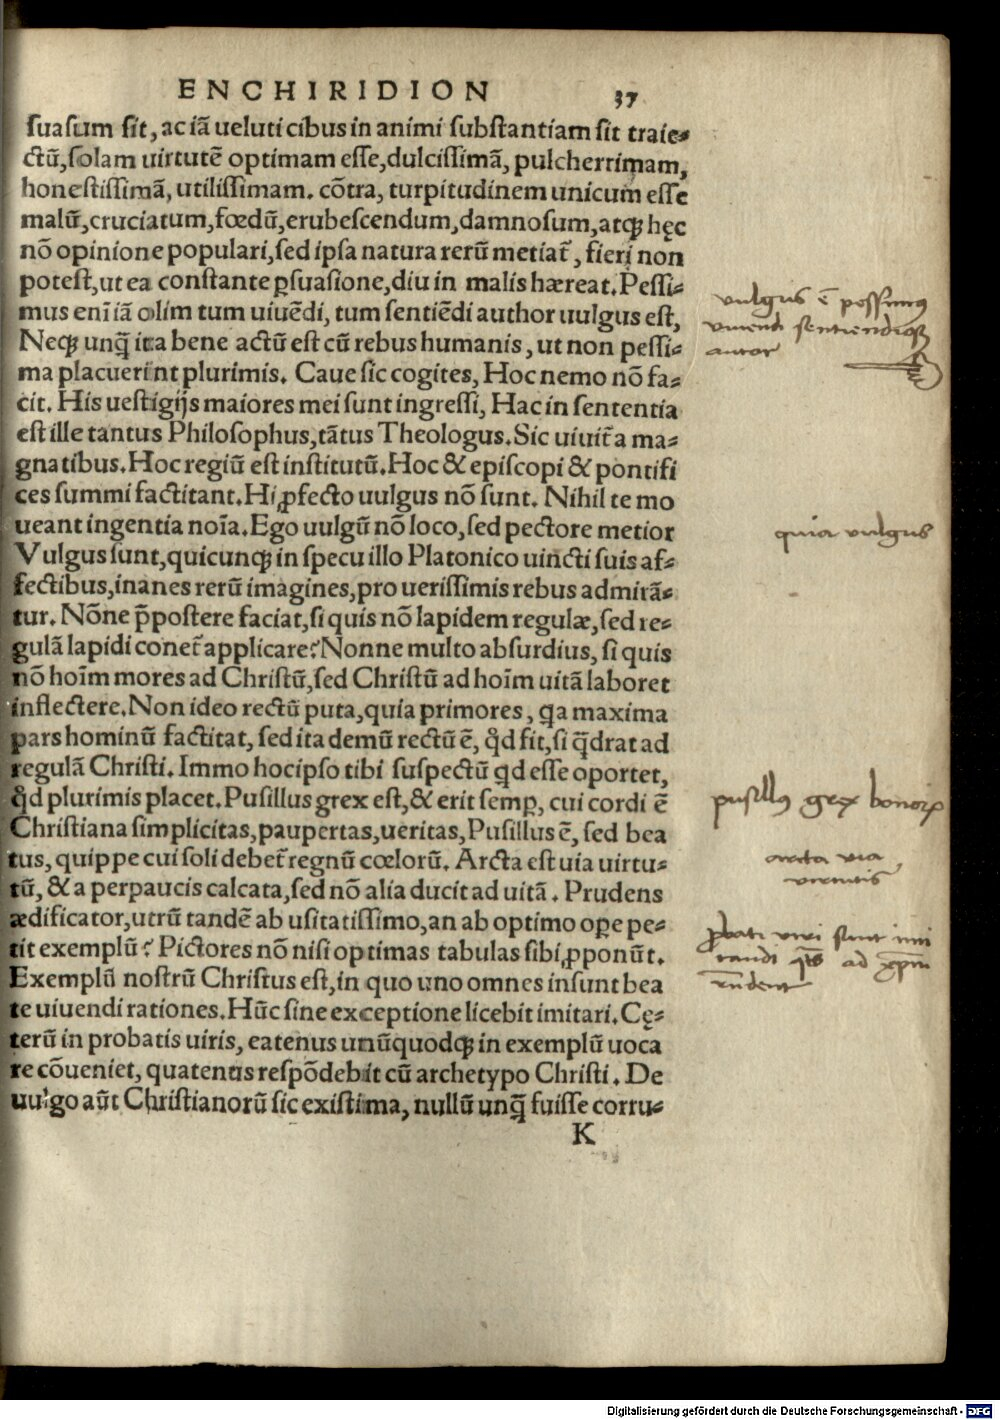 ENCHIRIDION 37
suasum sit, ac iā ueluti cibus in animi substantiam sit traie-
ctū, solam uirtutē optimam esse, dulcissimā, pulcherrimam,
honestissimā, utilissimam. cōtra, turpitudinem unicum esse
malū, cruciatum, fœdū, erubescendum, damnosum, atqꝫ hęc
nō opinione populari, sed ipsa natura rerū metiat᷑, fieri non
potest, ut ea constante ꝑsuasione, diu in malis hæreat. Pessi-
mus eni iā olim tum uiuēdi, tum sentiēdi author uulgus est,
Neqꝫ unq̄ ita bene actū est cū rebus humanis, ut non pessi-
ma placuerint plurimis. Caue sic cogites, Hoc nemo nō fa-
cit. His uestigijs maiores mei sunt ingressi, Hac in sententia
est ille tantus Philosophus, tātus Theologus. Sic uiuit᷑ a ma-
gnatibus. Hoc regiū est institutū. Hoc & episcopi & pontifi
ces summi factitant. Hi ꝓfecto uulgus nō sunt. Nihil te mo
ueant ingentia noīa. Ego uulgū nō loco, sed pectore metior
Vulgus sunt, quicunqꝫ in specu illo Platonico uincti suis af-
fectibus, inanes rerū imagines, pro uerissimis rebus admirā-
tur. Nōne p̄postere faciat, si quis nō lapidem regulæ, sed re-
gulā lapidi conet᷑ applicare? Nonne multo absurdius, si quis
nō hoīm mores ad Christū, sed Christū ad hoīm uitā laboret
inflectere. Non ideo rectū puta, quia primores, qa maxima
pars hominū factitat, sed ita demū rectū ē, qd fit, si q̄drat ad
regulā Christi. Immo hocipso tibi suspectū qd esse oportet,
qd plurimis placet. Pusillus grex est, & erit semꝑ, cui cordi ē
Christiana simplicitas, paupertas, ueritas, Pusillus ē, sed bea
tus, quippe cui soli debet᷑ regnū cœlorū. Arcta est uia uirtu-
tū, & a perpaucis calcata, sed nō alia ducit ad uitā. Prudens
ædificator, utrū tandē ab usitatissimo, an ab optimo oꝑe pe-
tit exemplū? Pictores nō nisi optimas tabulas sibi ꝓponūt.
Exemplū nostrū Christus est, in quo uno omnes insunt bea
te uiuendi rationes. Hūc sine exceptione licebit imitari. Cę-
terū in probatis uiris, eatenus unūquodqꝫ in exemplū uoca
re cōueniet, quatenus respōdebit cū archetypo Christi. De
uulgo aūt Christianorū sic existima, nullū unq̄ fuisse corru-
K
vulgus ē pessimꝰ
viuendi sentiendiqꝫ
autor
quia vulgus
pusillꝰ grex bonoꝝ
arcta via
virtutis
ꝓbati viri sunt imi
tandi
ad xp̄m
Digitalisierung gefördert durch die Deutsche Forschungsgemeinschaft - DFG